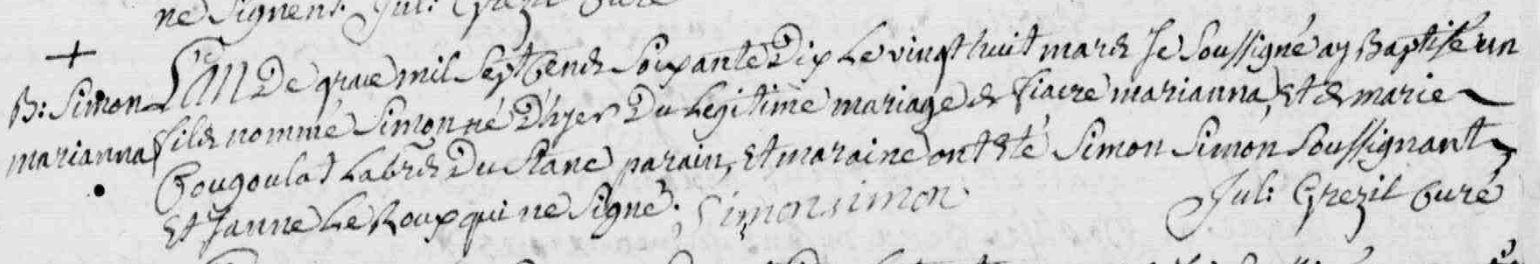 ne Signent. Jul: Grezil Curé
+
B: Simon
marianna
L'an De grace mil Sept Cends Soixante Dix Le vingt huit mards Je Soussigné ay Baptisé un
fils nommé Simon né D'hyer Du Legitime mariage de fiacre marianna, Et de marie
Cougoulat Labrds Du parain, Et maraine ont Eté Simon Simon Soussignant
Et Janne Le Roux qui ne Signe. Simon simon
Jul: Grezil Curé